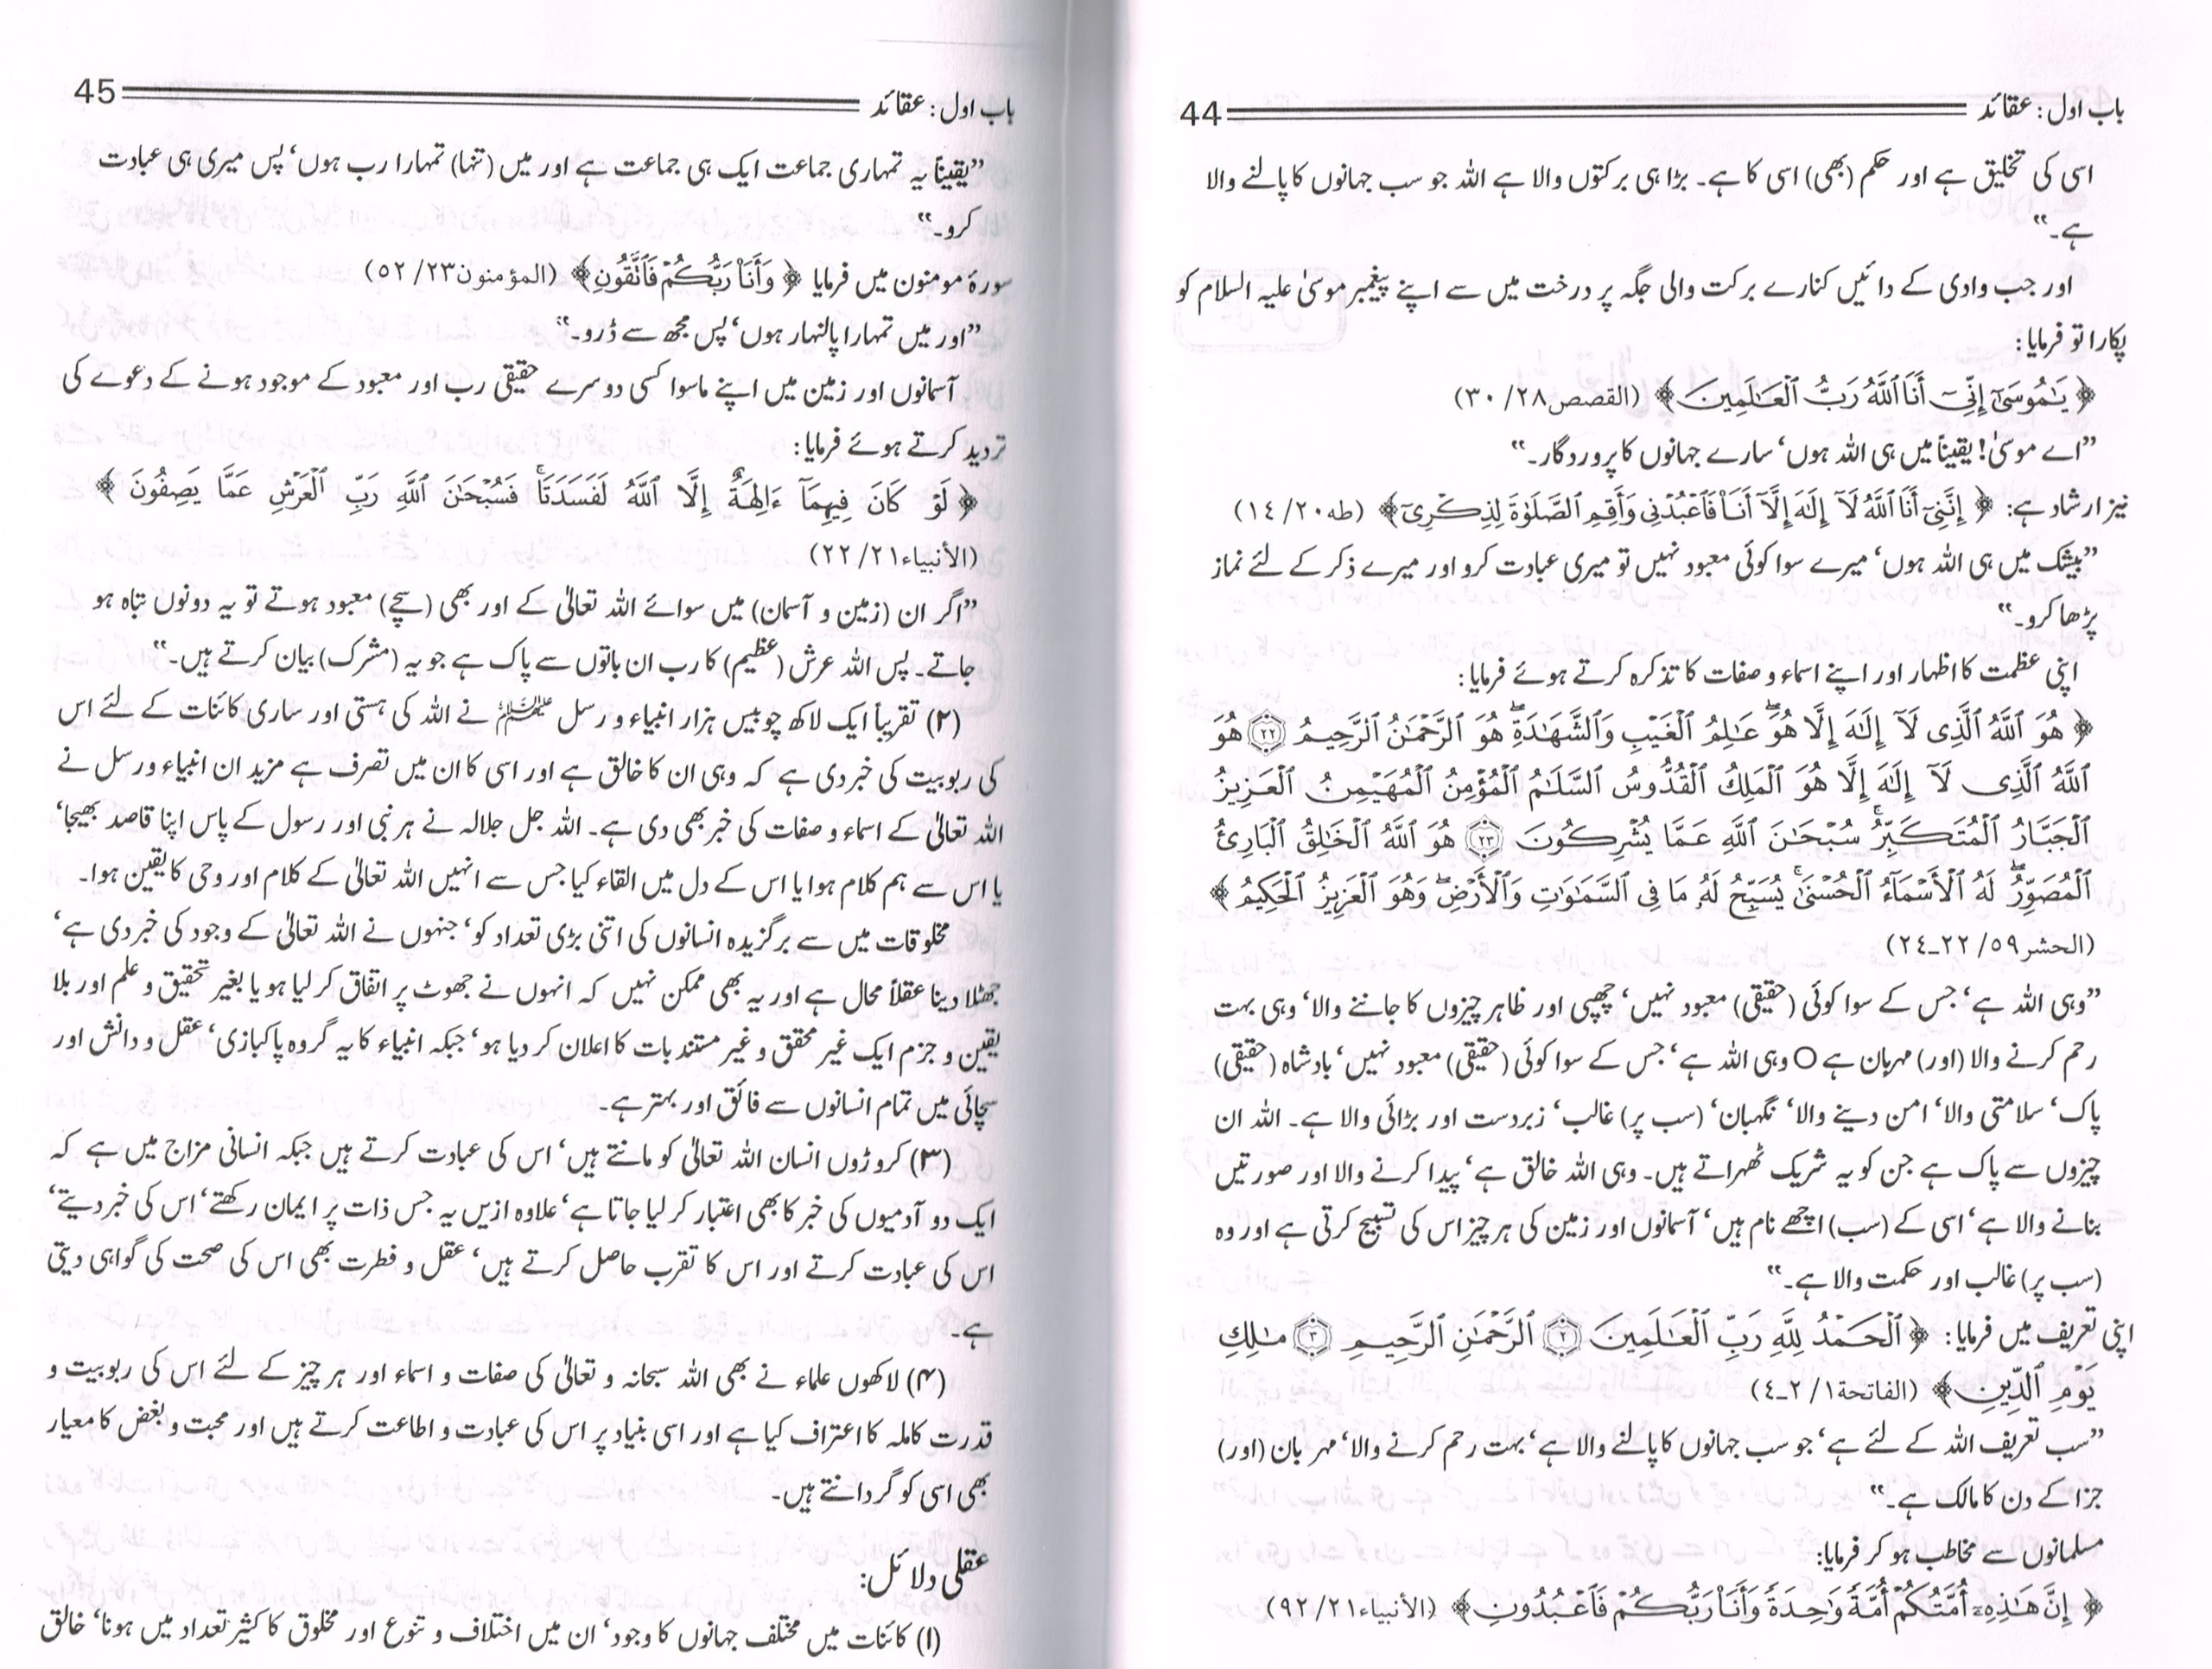 باب اول : عقائد 44
اسی کی تخلیق ہے اور حکم (بھی) اسی کا ہے۔ بڑا ہی برکتوں والا ہے اللہ جو سب جہانوں کا پالنے والا
ہے۔“
اور جب وادی کے دائیں کنارے برکت والی جگہ پر درخت میں سے اپنے پیغمبر موسیٰ علیہ السلام کو
پکارا تو فرمایا:
﴿ يَٰمُوسَىٰٓ إِنِّىٓ أَنَا ٱللَّهُ رَبُّ ٱلْعَٰلَمِينَ ﴾ (القصص٢٨/ ٣٠)
”اے موسیٰ! یقیناً میں ہی اللہ ہوں‘ سارے جہانوں کا پروردگار۔“
نیز ارشاد ہے: ﴿ إِنَّنِىٓ أَنَا ٱللَّهُ لَآ إِلَٰهَ إِلَّآ أَنَا۠ فَٱعْبُدْنِى وَأَقِمِ ٱلصَّلَوٰةَ لِذِكْرِىٓ ﴾ (طه٢٠/ ١٤)
”بیشک میں ہی اللہ ہوں‘ میرے سوا کوئی معبود نہیں تو میری عبادت کرو اور میرے ذکر کے لئے نماز
پڑھا کرو۔“
اپنی عظمت کا اظہار اور اپنے اسماء و صفات کا تذکرہ کرتے ہوئے فرمایا:
﴿ هُوَ ٱللَّهُ ٱلَّذِى لَآ إِلَٰهَ إِلَّا هُوَ ۖ عَٰلِمُ ٱلْغَيْبِ وَٱلشَّهَٰدَةِ ۖ هُوَ ٱلرَّحْمَٰنُ ٱلرَّحِيمُ ۝٢٢ هُوَ
ٱللَّهُ ٱلَّذِى لَآ إِلَٰهَ إِلَّا هُوَ ٱلْمَلِكُ ٱلْقُدُّوسُ ٱلسَّلَٰمُ ٱلْمُؤْمِنُ ٱلْمُهَيْمِنُ ٱلْعَزِيزُ
ٱلْجَبَّارُ ٱلْمُتَكَبِّرُ ۚ سُبْحَٰنَ ٱللَّهِ عَمَّا يُشْرِكُونَ ۝٢٣ هُوَ ٱللَّهُ ٱلْخَٰلِقُ ٱلْبَارِئُ
ٱلْمُصَوِّرُ ۖ لَهُ ٱلْأَسْمَآءُ ٱلْحُسْنَىٰ ۚ يُسَبِّحُ لَهُۥ مَا فِى ٱلسَّمَٰوَٰتِ وَٱلْأَرْضِ ۖ وَهُوَ ٱلْعَزِيزُ ٱلْحَكِيمُ ﴾
(الحشر٥٩/ ٢٢ـ٢٤)
”وہی اللہ ہے‘ جس کے سوا کوئی (حقیقی) معبود نہیں‘ چھپی اور ظاہر چیزوں کا جاننے والا‘ وہی بہت
رحم کرنے والا (اور) مہربان ہے O وہی اللہ ہے‘ جس کے سوا کوئی (حقیقی) معبود نہیں‘ بادشاہ (حقیقی)
پاک‘ سلامتی والا‘ امن دینے والا‘ نگہبان‘ (سب پر) غالب‘ زبردست اور بڑائی والا ہے۔ اللہ ان
چیزوں سے پاک ہے جن کو یہ شریک ٹھہراتے ہیں۔ وہی اللہ خالق ہے‘ پیدا کرنے والا اور صورتیں
بنانے والا ہے‘ اسی کے (سب) اچھے نام ہیں‘ آسمانوں اور زمین کی ہر چیز اس کی تسبیح کرتی ہے اور وہ
(سب پر) غالب اور حکمت والا ہے۔“
اپنی تعریف میں فرمایا: ﴿ ٱلْحَمْدُ لِلَّهِ رَبِّ ٱلْعَٰلَمِينَ ۝٢ ٱلرَّحْمَٰنِ ٱلرَّحِيمِ ۝٣ مَٰلِكِ
يَوْمِ ٱلدِّينِ ﴾ (الفاتحة١/ ٢ـ٤)
”سب تعریف اللہ کے لئے ہے‘ جو سب جہانوں کا پالنے والا ہے‘ بہت رحم کرنے والا‘ مہربان (اور)
جزا کے دن کا مالک ہے۔“
مسلمانوں سے مخاطب ہو کر فرمایا:
﴿ إِنَّ هَٰذِهِۦٓ أُمَّتُكُمْ أُمَّةً وَٰحِدَةً وَأَنَا۠ رَبُّكُمْ فَٱعْبُدُونِ ﴾ (الأنبياء٢١/ ٩٢)
باب اول : عقائد 45
”یقیناً یہ تمہاری جماعت ایک ہی جماعت ہے اور میں (تنہا) تمہارا رب ہوں‘ پس میری ہی عبادت
کرو۔“
سورۂ مومنون میں فرمایا ﴿ وَأَنَا۠ رَبُّكُمْ فَٱتَّقُونِ ﴾ (المؤمنون٢٣/ ٥٢)
”اور میں تمہارا پالنہار ہوں‘ پس مجھ سے ڈرو۔“
آسمانوں اور زمین میں اپنے ماسوا کسی دوسرے حقیقی رب اور معبود کے موجود ہونے کے دعوے کی
تردید کرتے ہوئے فرمایا:
﴿ لَوْ كَانَ فِيهِمَآ ءَالِهَةٌ إِلَّا ٱللَّهُ لَفَسَدَتَا ۚ فَسُبْحَٰنَ ٱللَّهِ رَبِّ ٱلْعَرْشِ عَمَّا يَصِفُونَ ﴾
(الأنبياء٢١/ ٢٢)
”اگر ان (زمین و آسمان) میں سوائے اللہ تعالیٰ کے اور بھی (سچے) معبود ہوتے تو یہ دونوں تباہ ہو
جاتے۔ پس اللہ عرش (عظیم) کا رب ان باتوں سے پاک ہے جو یہ (مشرک) بیان کرتے ہیں۔“
(۲) تقریباً ایک لاکھ چوبیس ہزار انبیاء و رسل علیہم السلام نے اللہ کی ہستی اور ساری کائنات کے لئے اس
کی ربوبیت کی خبر دی ہے کہ وہی ان کا خالق ہے اور اسی کا ان میں تصرف ہے مزید ان انبیاء و رسل نے
اللہ تعالیٰ کے اسماء و صفات کی خبر بھی دی ہے۔ اللہ جل جلالہ نے ہر نبی اور رسول کے پاس اپنا قاصد بھیجا‘
یا اس سے ہم کلام ہوا یا اس کے دل میں القاء کیا جس سے انہیں اللہ تعالیٰ کے کلام اور وحی کا یقین ہوا۔
مخلوقات میں سے برگزیدہ انسانوں کی اتنی بڑی تعداد کو‘ جنہوں نے اللہ تعالیٰ کے وجود کی خبر دی ہے‘
جھٹلا دینا عقلاً محال ہے اور یہ بھی ممکن نہیں کہ انہوں نے جھوٹ پر اتفاق کر لیا ہو یا بغیر تحقیق و علم اور بلا
یقین و جزم ایک غیر محقق و غیر مستند بات کا اعلان کر دیا ہو‘ جبکہ انبیاء کا یہ گروہ پاکبازی‘ عقل و دانش اور
سچائی میں تمام انسانوں سے فائق اور بہتر ہے۔
(۳) کروڑوں انسان اللہ تعالیٰ کو مانتے ہیں‘ اس کی عبادت کرتے ہیں جبکہ انسانی مزاج میں ہے کہ
ایک دو آدمیوں کی خبر کا بھی اعتبار کر لیا جاتا ہے‘ علاوہ ازیں یہ جس ذات پر ایمان رکھتے‘ اس کی خبر دیتے‘
اس کی عبادت کرتے اور اس کا تقرب حاصل کرتے ہیں‘ عقل و فطرت بھی اس کی صحت کی گواہی دیتی
ہے۔
(۴) لاکھوں علماء نے بھی اللہ سبحانہ و تعالیٰ کی صفات و اسماء اور ہر چیز کے لئے اس کی ربوبیت و
قدرت کاملہ کا اعتراف کیا ہے اور اسی بنیاد پر اس کی عبادت و اطاعت کرتے ہیں اور محبت و بغض کا معیار
بھی اسی کو گردانتے ہیں۔
عقلی دلائل:
(۱) کائنات میں مختلف جہانوں کا وجود‘ ان میں اختلاف و تنوع اور مخلوق کا کثیر تعداد میں ہونا‘ خالق